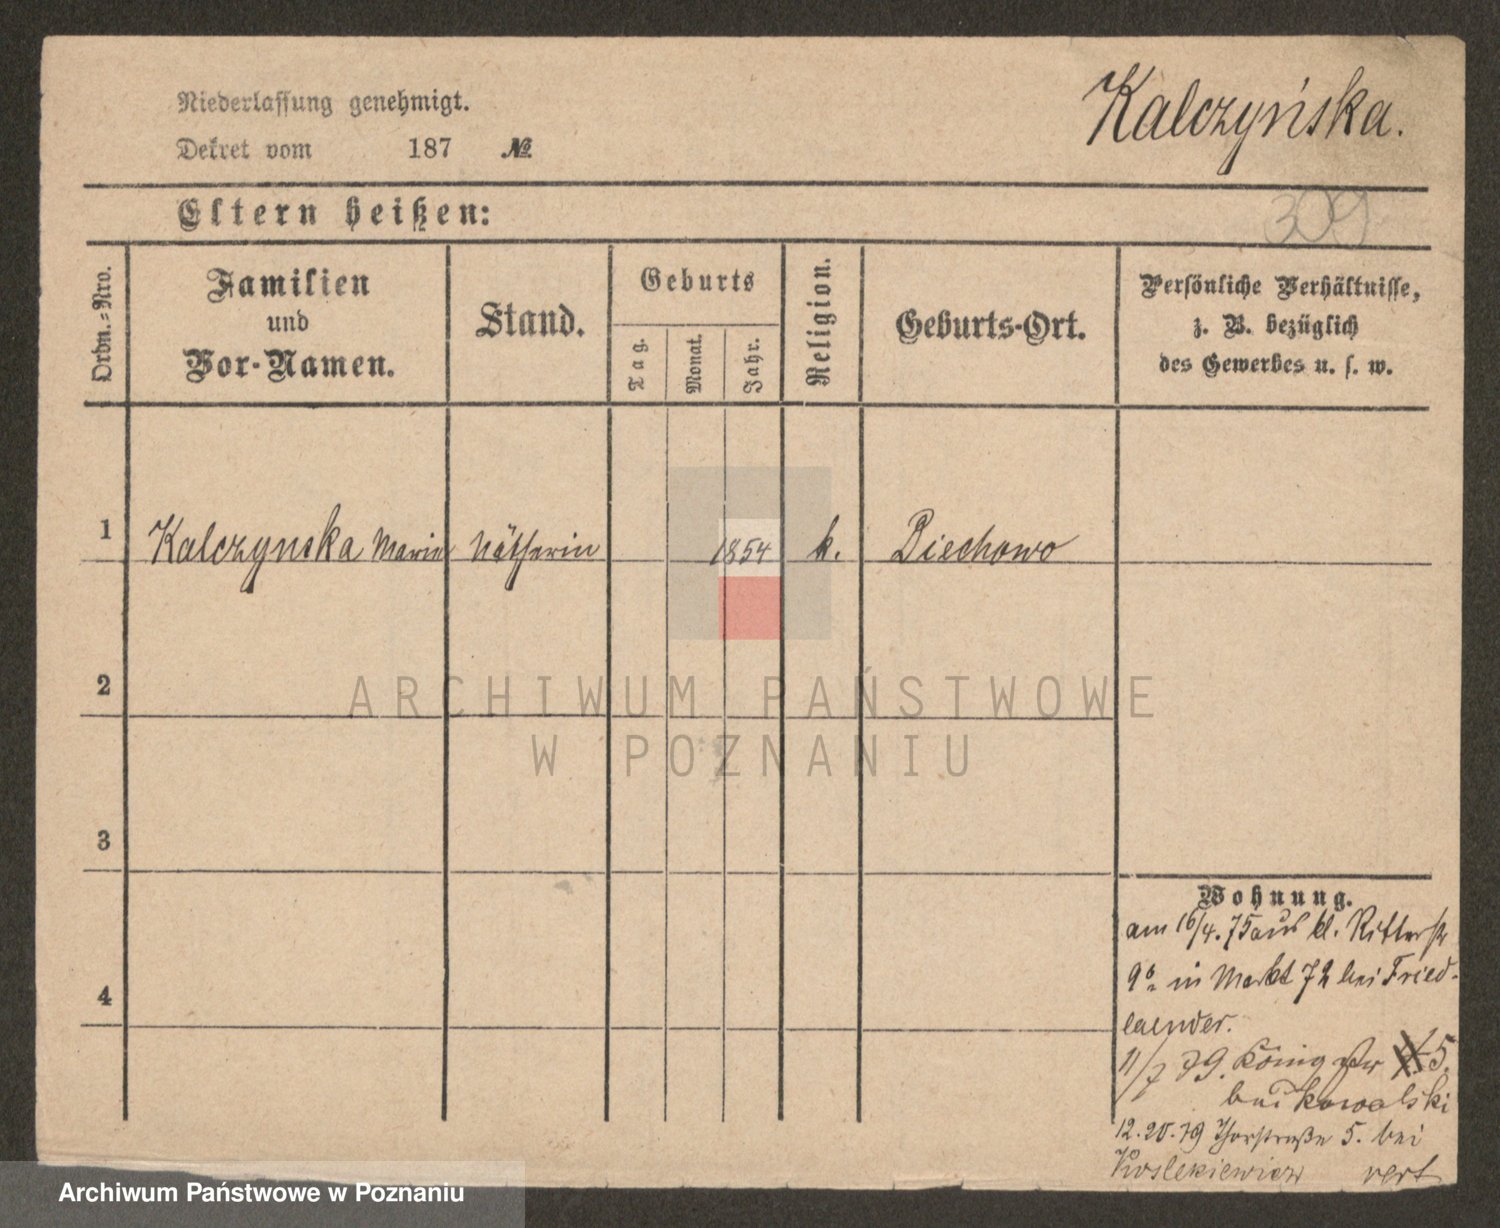 Niederlassung genehmigt.
Dekret vom 187 №
Kalczyńska.
Eltern heißen:
309
Ordn.-Nro.
Familien
und
Vor-Namen.
Stand.
Geburts
Tag.
Monat.
Jahr.
Religion.
Geburts-Ort.
Persönliche Verhältnisse,
z. B. bezüglich
des Gewerbes u. s. w.
1 Kalczynska Marie Nätherin 1854 k. Biechowo
2
3
4
Wohnung.
am 16/4. 75 aus kl. Ritterstr
9 in Markt 72 bei Fried-
laender.
11/7 79. Königstr 5.
bei Kowalski
12. 79 Thorstraße 5. bei
ARCHIWUM PAŃSTWOWE
W POZNANIU
Archiwum Państwowe w Poznaniu